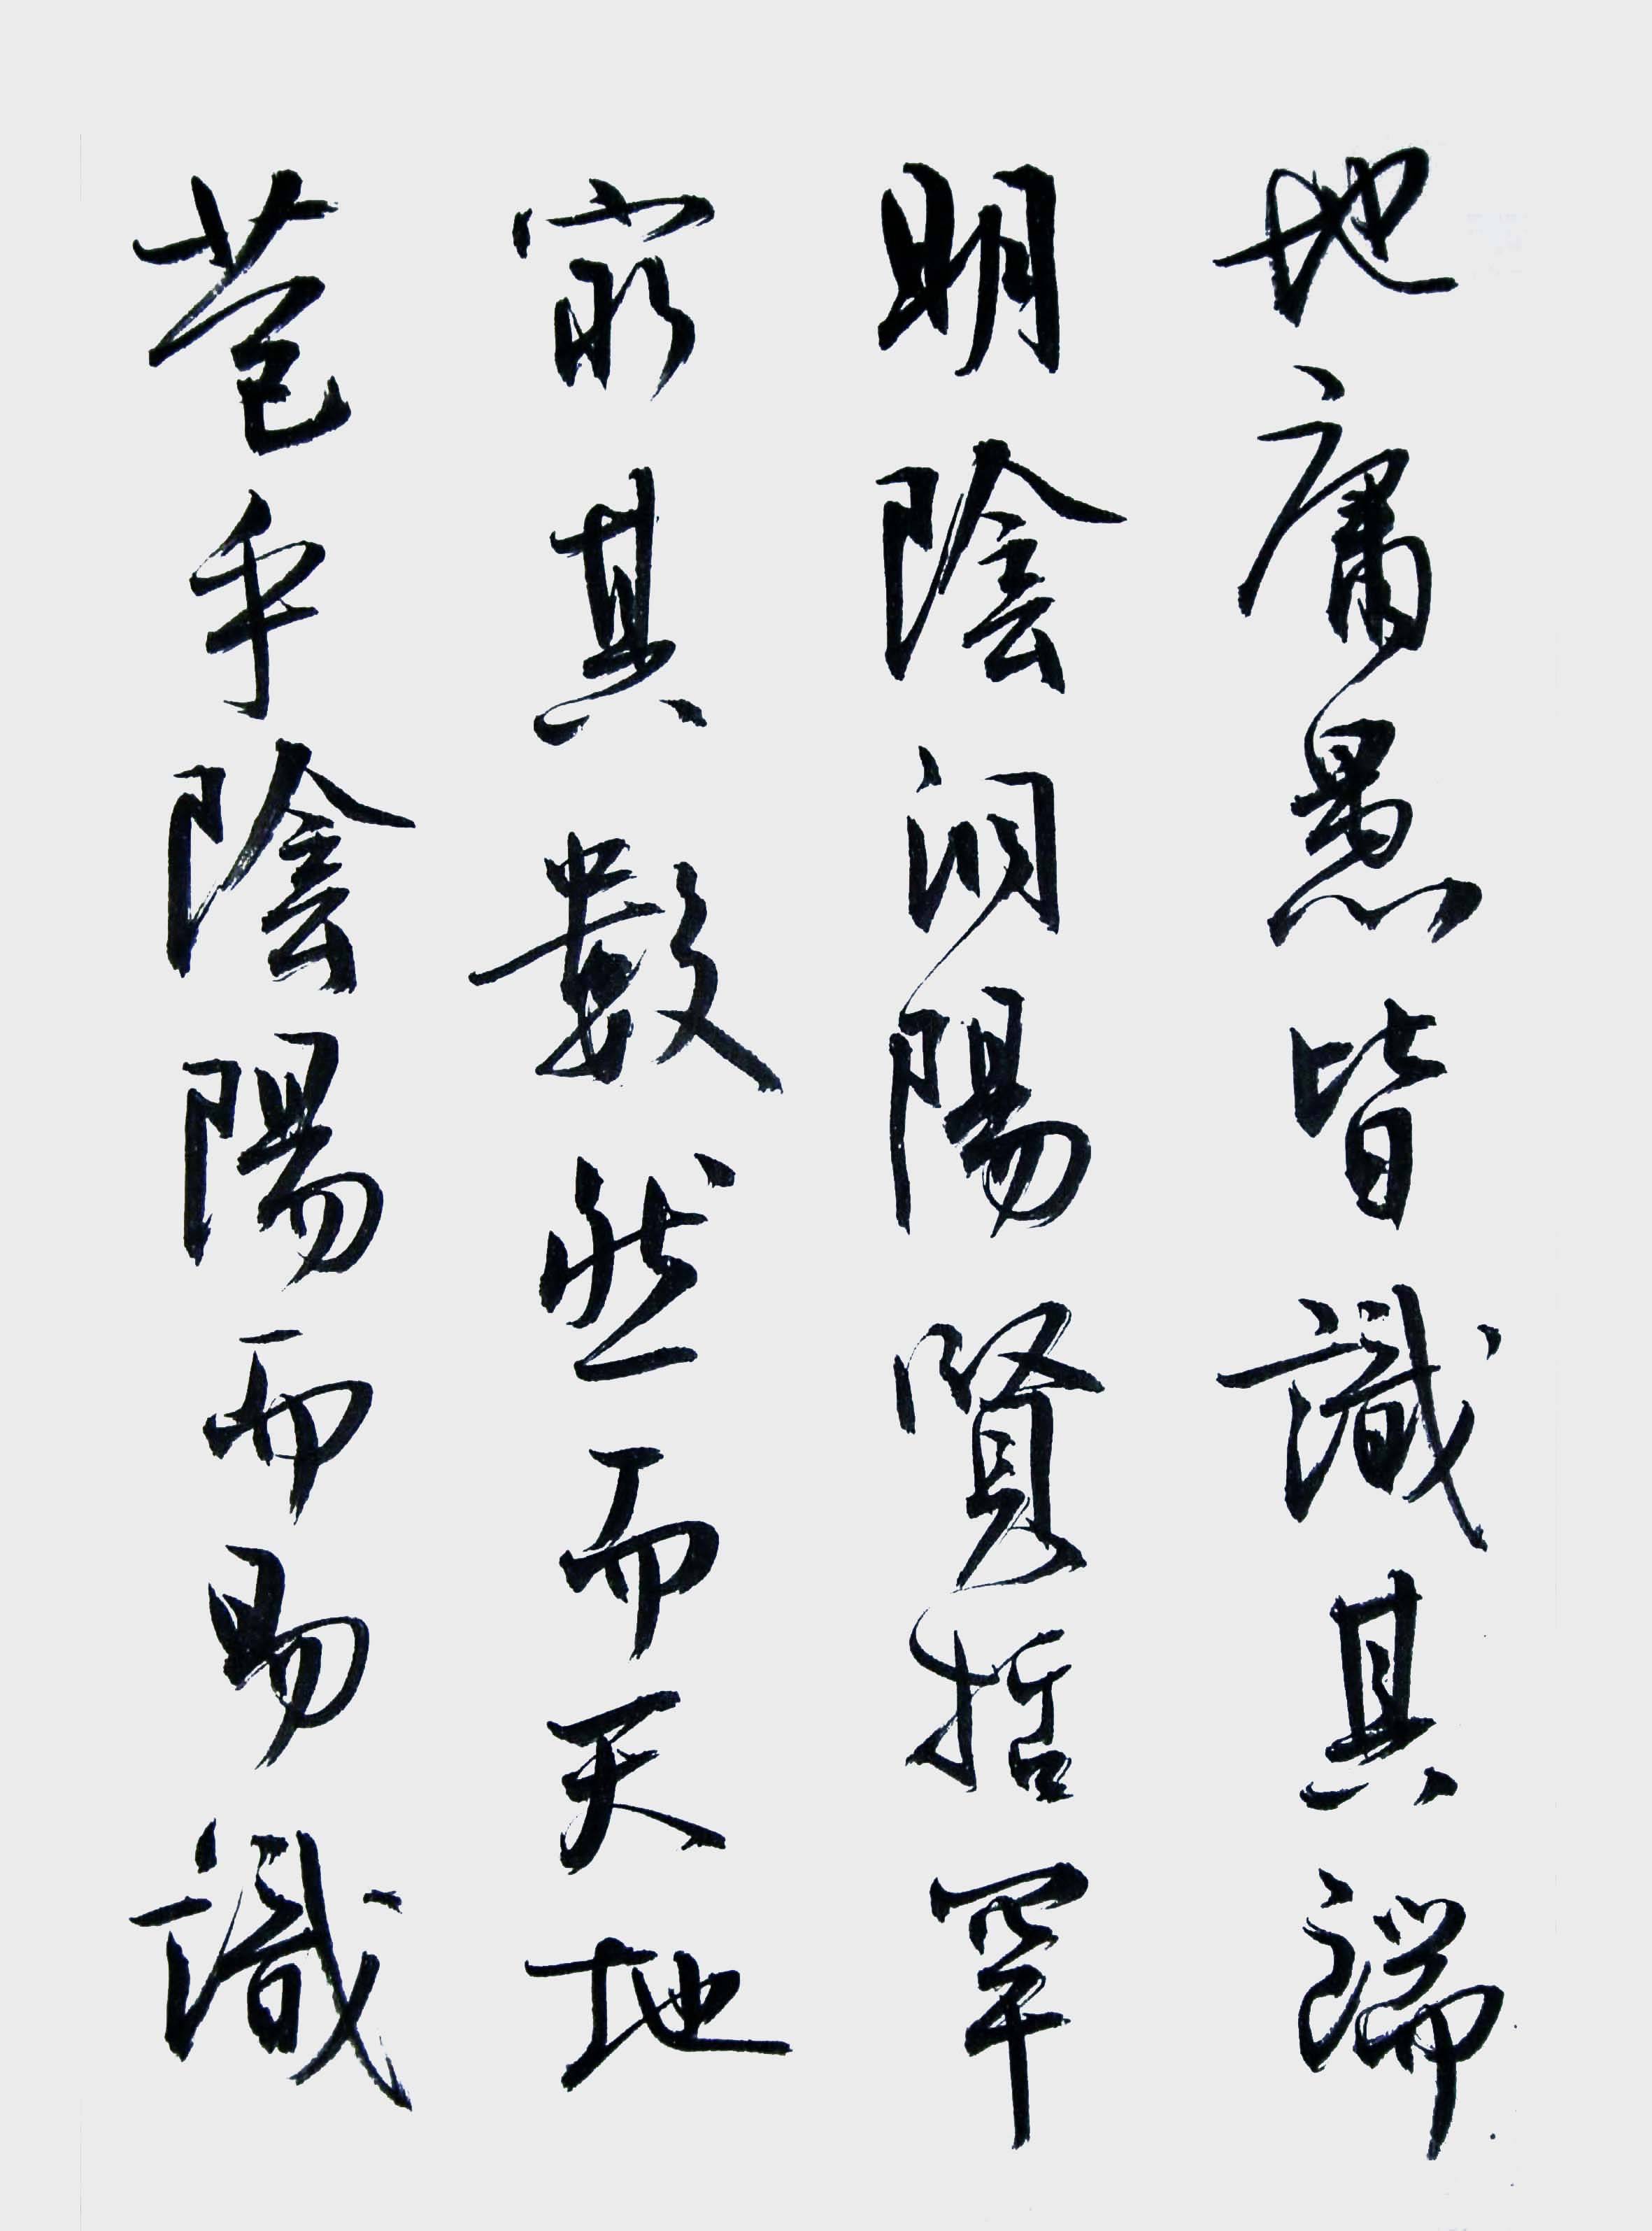 地庸愚皆識其端
明陰洞陽賢哲罕
窮其數然而天地
苞乎陰陽而易識